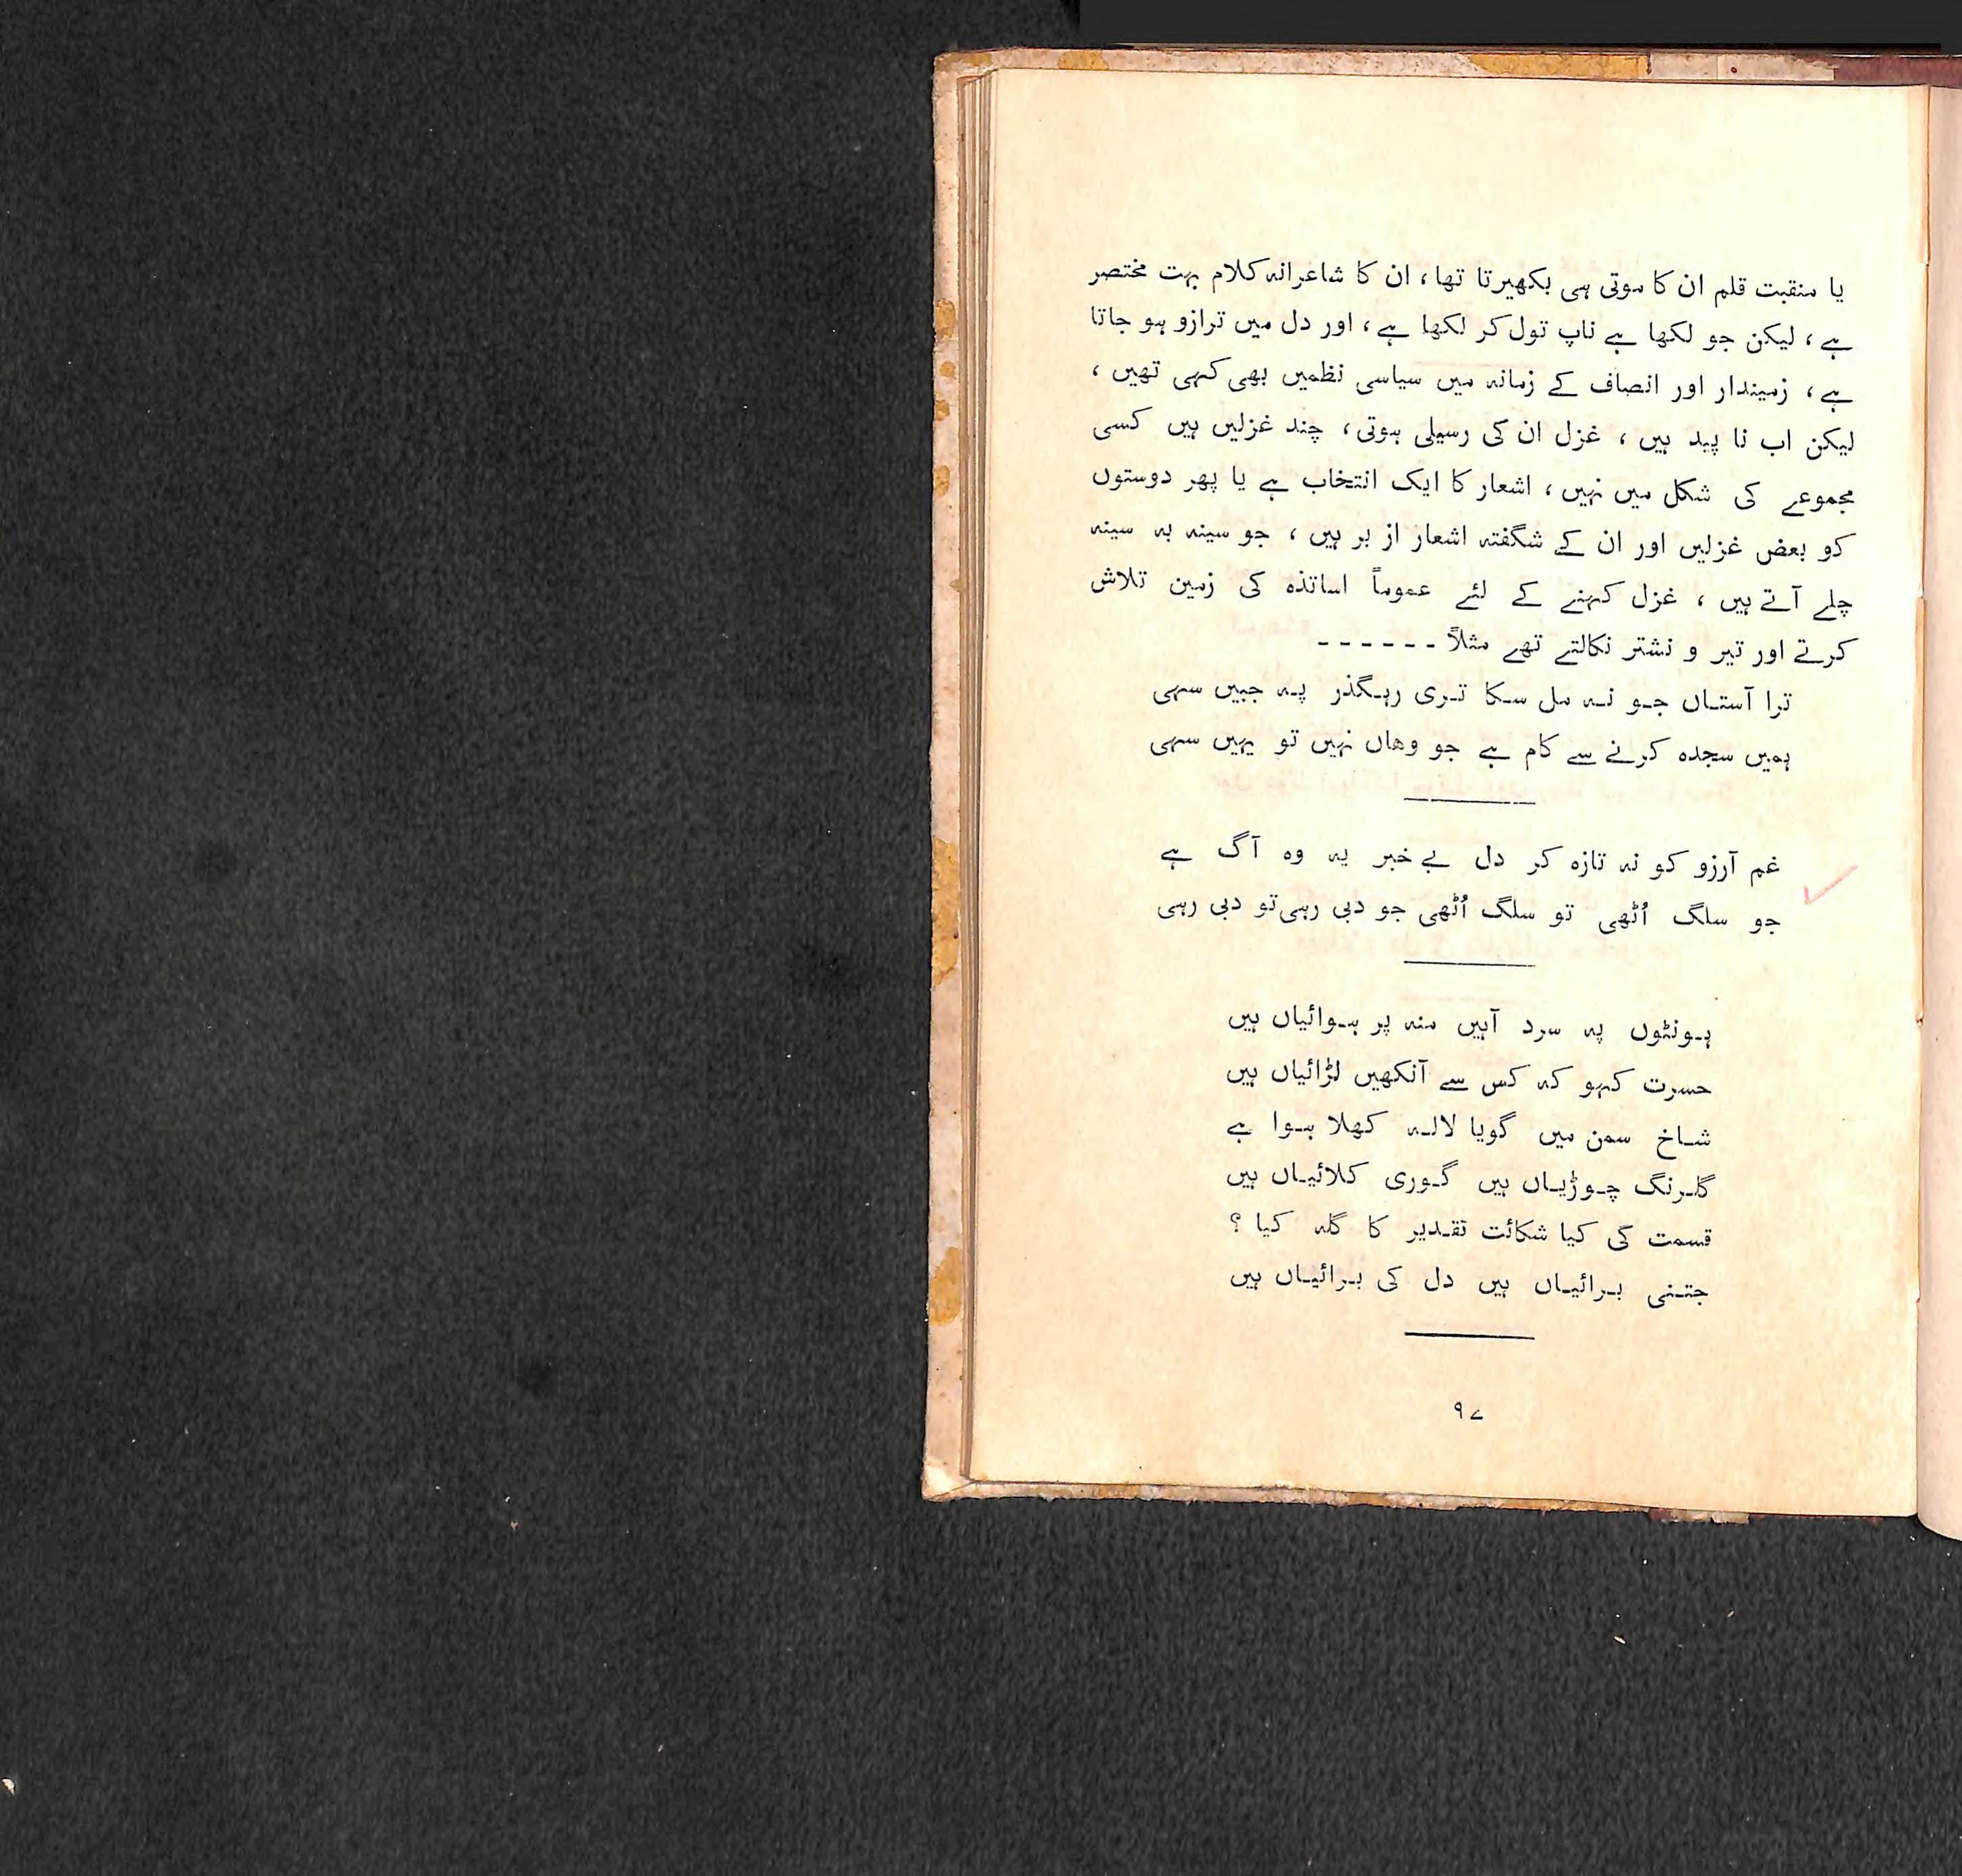 یا منقبت قلم ان کا موتی ہی بکھیرتا تھا، ان کا شاعرانہ کلام بہت مختصر
ہے، لیکن جو لکھا ہے ناپ تول کر لکھا ہے، اور دل میں ترازو ہو جاتا
ہے، زمیندار اور انصاف کے زمانہ میں سیاسی نظمیں بھی کہی تھیں،
لیکن اب نا پید ہیں، غزل ان کی رسیلی ہوتی، چند غزلیں ہیں کسی
مجموعے کی شکل میں نہیں، اشعار کا ایک انتخاب ہے یا پھر دوستوں
کو بعض غزلیں اور ان کے شگفتہ اشعار از بر ہیں، جو سینہ بہ سینہ
چلے آتے ہیں، غزل کہنے کے لئے عموماً اساتذہ کی زمین تلاش
کرتے اور تیر و نشتر نکالتے تھے مثلاً - - - - - -
ترا آستاں جو نہ مل سکا تری رہگذر پہ جبیں سہی
ہمیں سجدہ کرنے سے کام ہے جو وھاں نہیں تو یہیں سہی
غم آرزو کو نہ تازہ کر دل بے خبر یہ وہ آگ ہے
جو سلگ اُٹھی تو سلگ اُٹھی جو دبی رہی تو دبی رہی
ہونٹوں پہ سرد آہیں منہ پر ہوائیاں ہیں
حسرت کہو کہ کس سے آنکھیں لڑائیاں ہیں
شاخ سمن میں گویا لالہ کھلا ہوا ہے
گلرنگ چوڑیاں ہیں گوری کلائیاں ہیں
قسمت کی کیا شکائت تقدیر کا گلہ کیا ؟
جتنی برائیاں ہیں دل کی برائیاں ہیں
۹۷